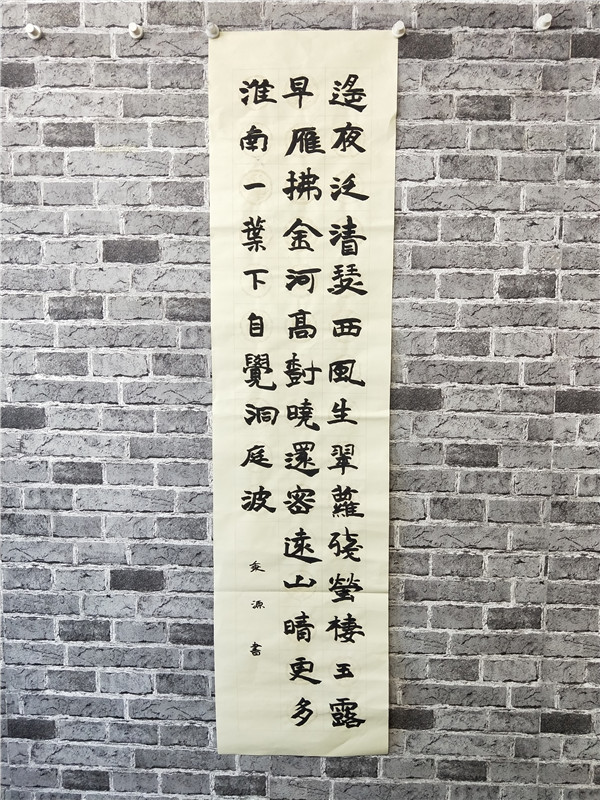 遙夜泛清瑟西風生翠蘿殘螢棲玉露
早雁拂金河高樹曉還密遠山晴更多
淮南一葉下自覺洞庭波
源書